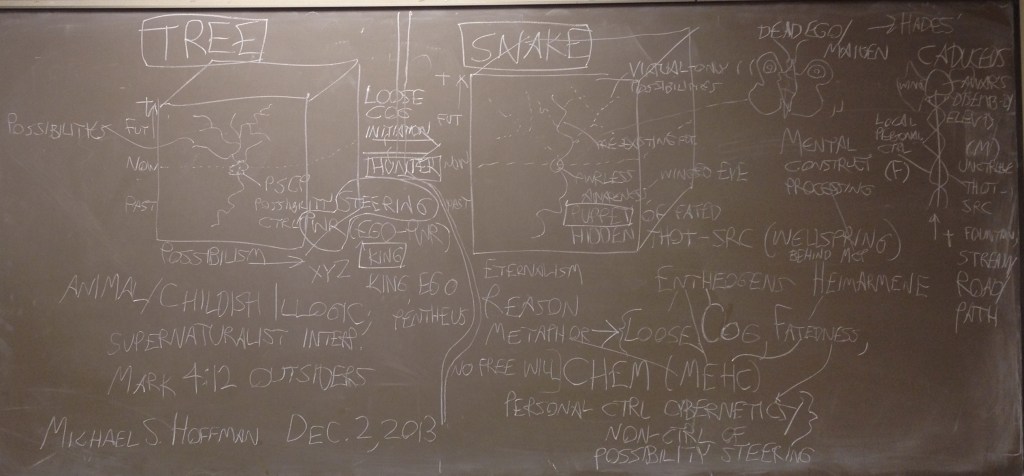 TREE
POSSIBILITIES
+
FUT
NOW
PAST
PSCP
POSSIBILITY STEERING
CTRL
POSSIBILISM
XYZ
ANIMAL/CHILDISH ILLOGIC,
SUPERNATURALIST INTERP.
MARK 4:12 OUTSIDERS
MICHAEL S. HOFFMAN DEC. 2, 2013
LOOSE
COG
INITIATION
HUNTER
KING
KING EGO
PENTHEUS
SNAKE
+
FUT
NOW
VIRTUAL-ONLY
POSSIBILITIES
PRE-EXISTING FUT
CTRLLESS
AWARENESS
PUPPET
HIDDEN
WINGED EVE
THOT-SRC (WELLSPRING)
BEHIND MCP
ETERNALISM
REASON
METAPHOR
NO FREE WILL
ENTHEOGENS HEIMARMENE
LOOSE COG, FATEDNESS,
CHEM (MEHE)
PERSONAL CTRL CYBERNETICS
NON-CTRL OF
POSSIBILITY STEERING
DEAD EGO/
MAIDEN
HADES'
MENTAL
CONSTRUCT
PROCESSING
CADUCEUS
LOCAL
PERSONAL
CTRL
(F)
(M)
THOT-
SRC
+
FOUNTAIN
STREAM
ROAD/
PATH